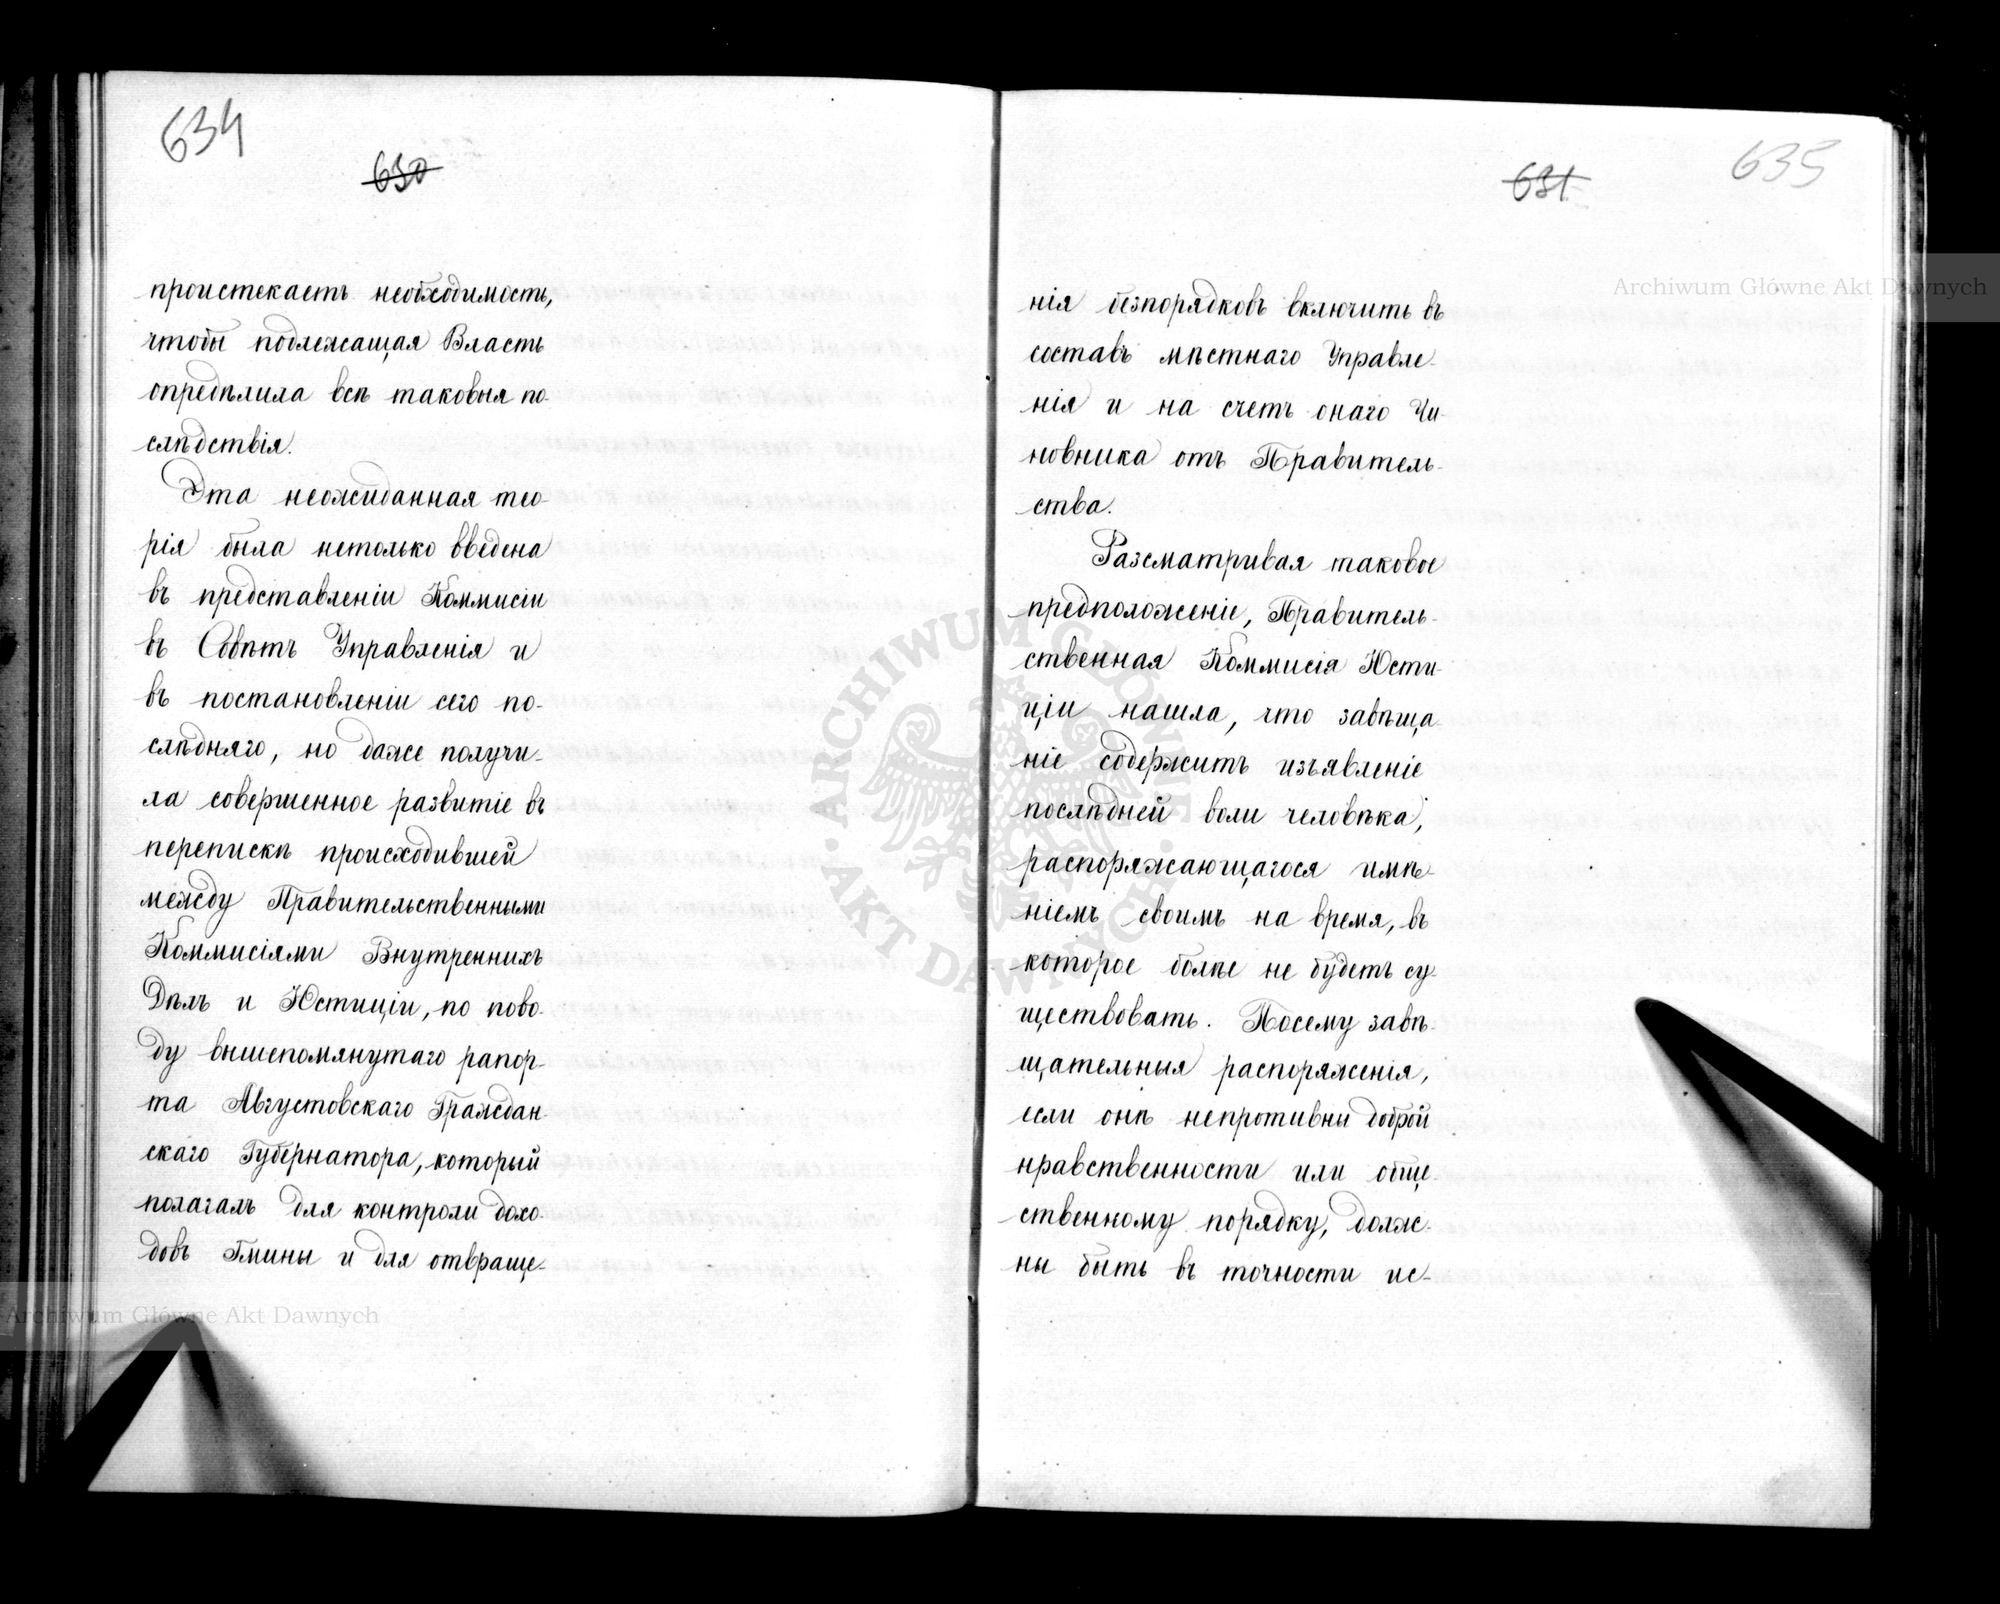 634
630
проистекаетъ необходимость,
чтобы подлежащая Власть
опредѣлила всѣ таковыя по-
слѣдствія.
Эта неожиданная тео-
рія была нетолько введена
въ представленіи Коммисіи
въ Совѣтъ Управленія и
въ постановленіи сего по-
слѣдняго, но даже получи-
ла совершенное развитіе въ
перепискѣ происходившей
между Правительственными
Коммисіями Внутреннихъ
Дѣлъ и Юстиціи, по пово-
ду вышепомянутаго рапор-
та Августовскаго Граждан-
скаго Губернатора, который
полагалъ для контроли дохо-
довъ Гмины и для отвраще-
Archiwum Główne Akt Dawnych
635
631
Archiwum Główne Akt Dawnych
нія безпорядковъ включить въ
составъ мѣстнаго Управле-
нія и на счетъ онаго Чи-
новника отъ Правитель-
ства.
Разсматривая таковое
предположеніе, Правитель-
ственная Коммисія Юсти-
ціи нашла, что завѣща-
ніе содержитъ изъявленіе
послѣдней воли человѣка,
распоряжающагося имѣ-
ніемъ своимъ на время, въ
которое болѣе не будетъ су-
ществовать. Посему завѣ-
щательныя распоряженія,
если онѣ непротивны доброй
нравственности или обще-
ственному порядку, долж-
ны быть въ точности ис-
ARCHIWUM GŁÓWNE
AKT DAWNYCH